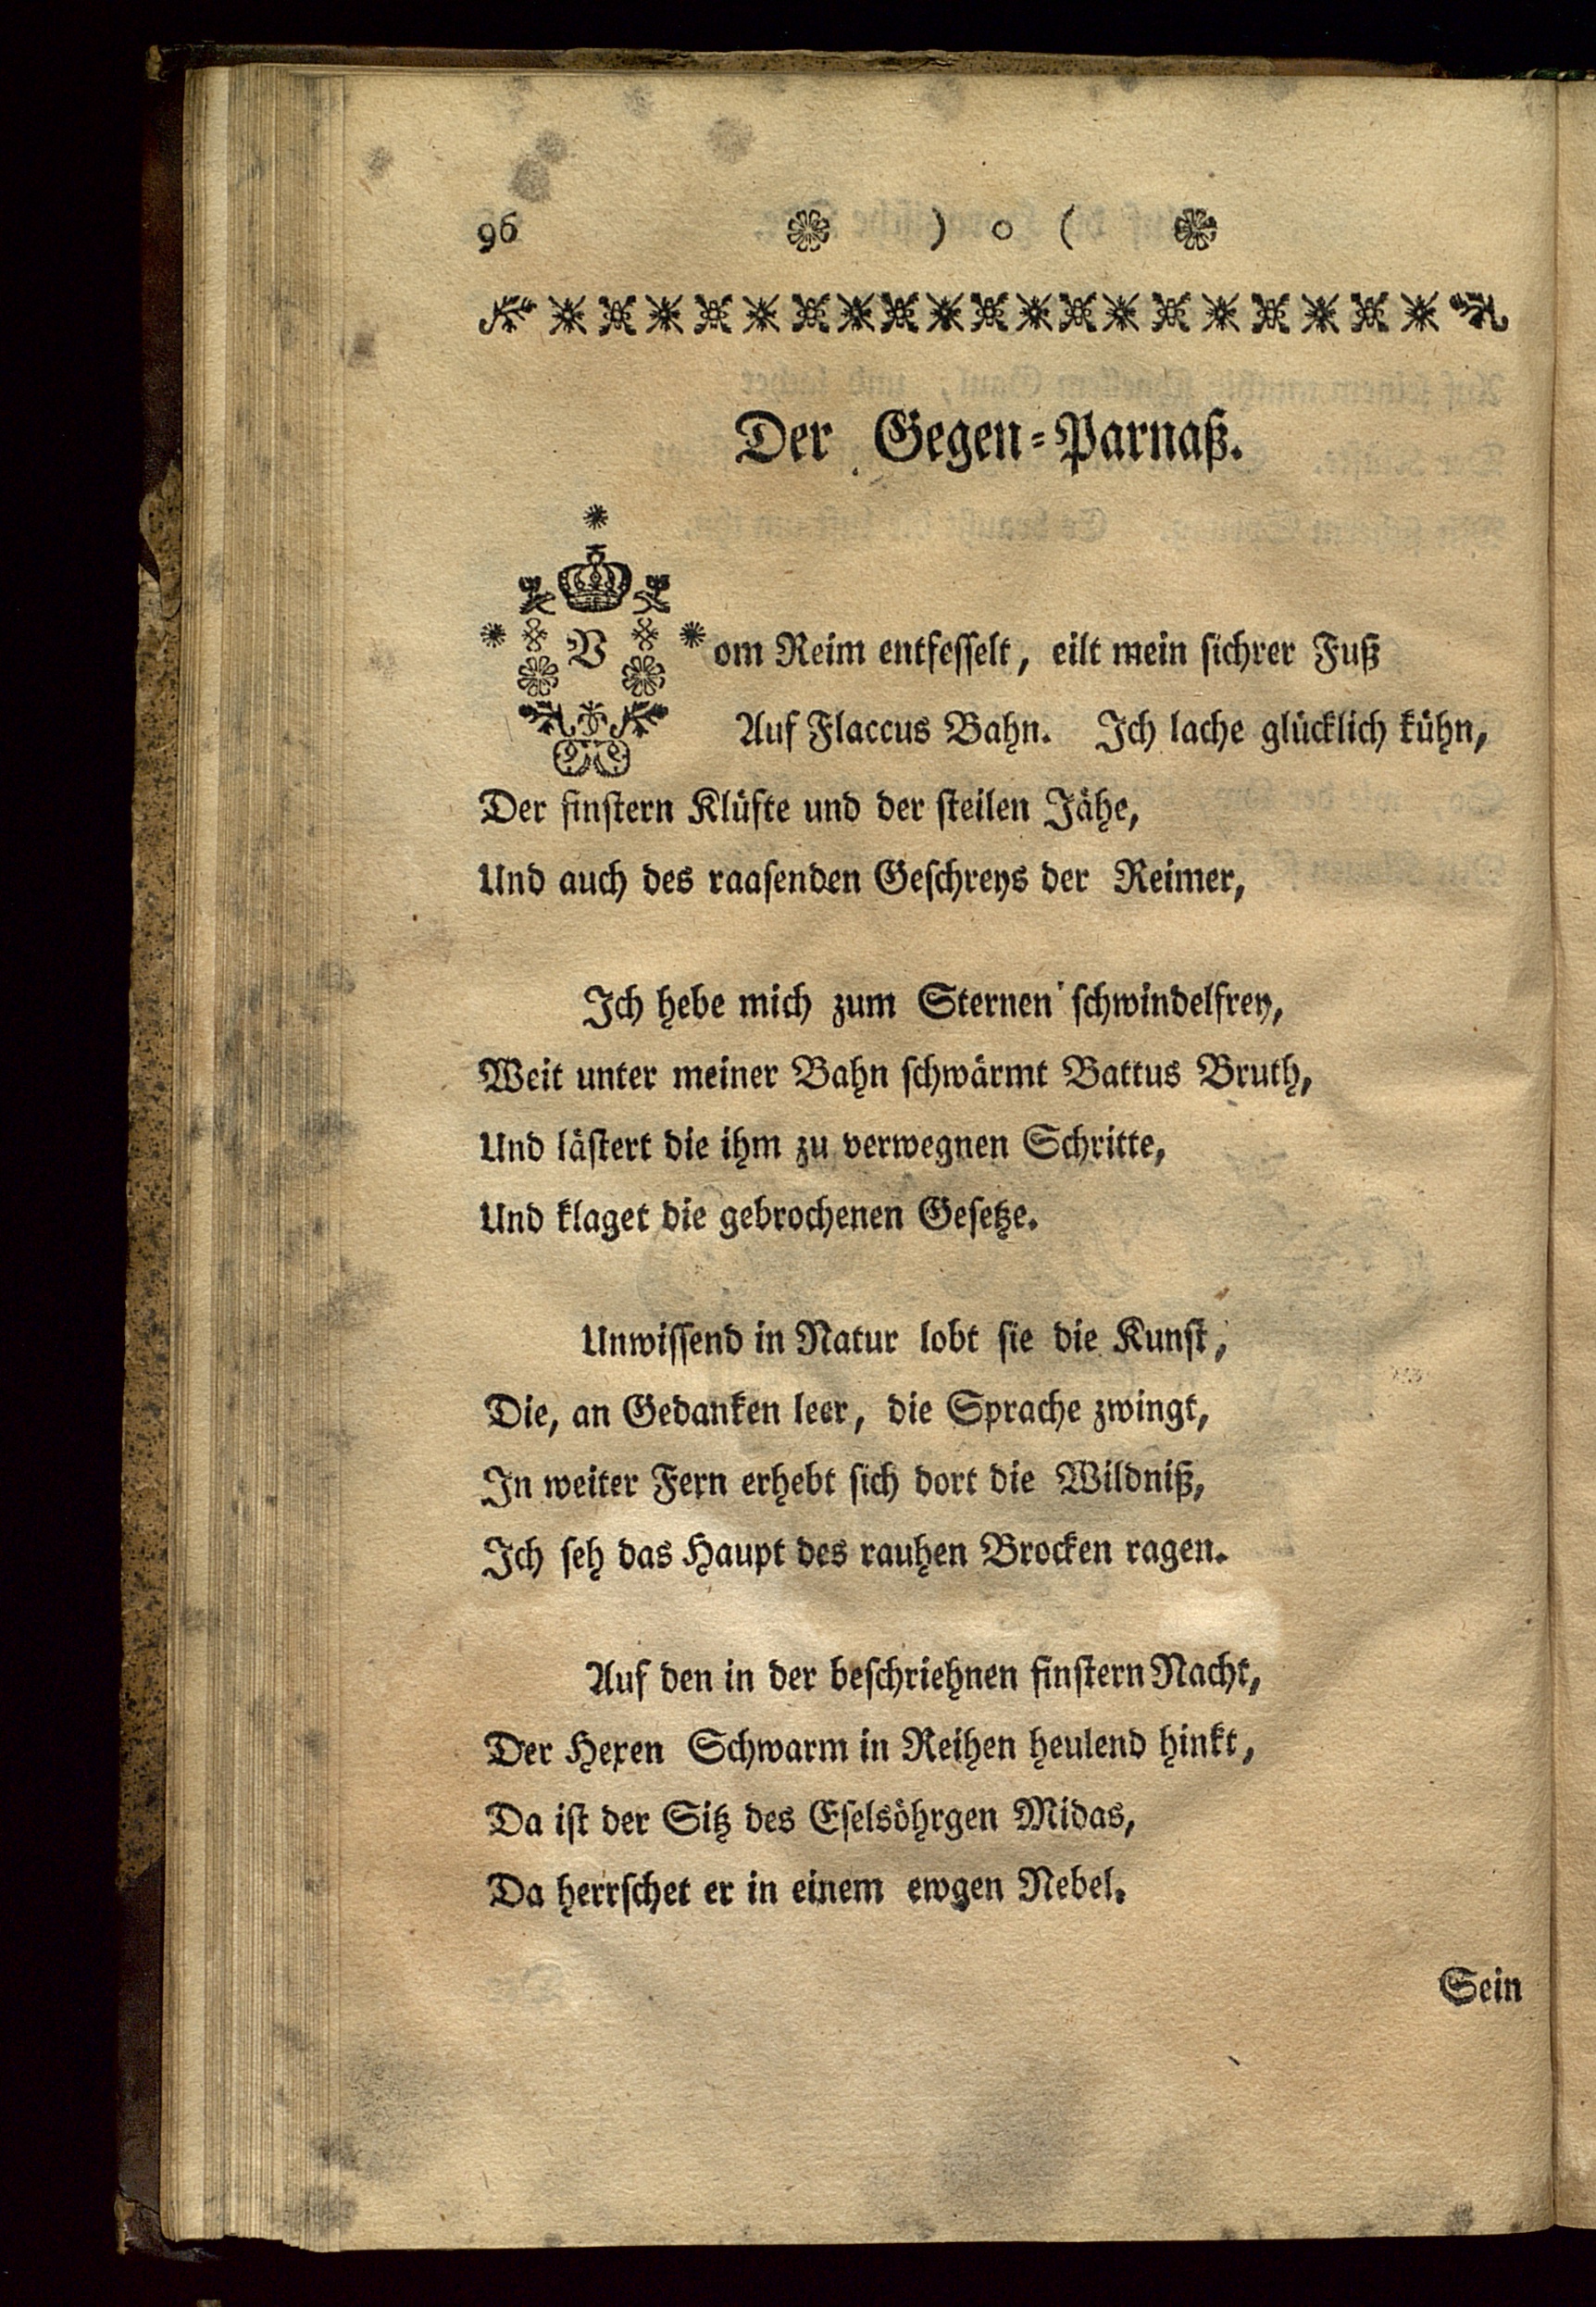 96 ) o (
Der Gegen-Parnaß.
Vom Reim entfesselt, eilt mein sichrer Fuß
Auf Flaccus Bahn. Ich lache glücklich kühn,
Der finstern Klüfte und der steilen Jähe,
Und auch des raasenden Geschreys der Reimer,
Ich hebe mich zum Sternen schwindelfrey,
Weit unter meiner Bahn schwärmt Battus Bruth,
Und lästert die ihm zu verwegnen Schritte,
Und klaget die gebrochenen Gesetze.
Unwissend in Natur lobt sie die Kunst,
Die, an Gedanken leer, die Sprache zwingt,
In weiter Fern erhebt sich dort die Wildniß,
Ich seh das Haupt des rauhen Brocken ragen.
Auf den in der beschriehnen finstern Nacht,
Der Hexen Schwarm in Reihen heulend hinkt,
Da ist der Sitz des Eselsöhrgen Midas,
Da herrschet er in einem ewgen Nebel.
Sein